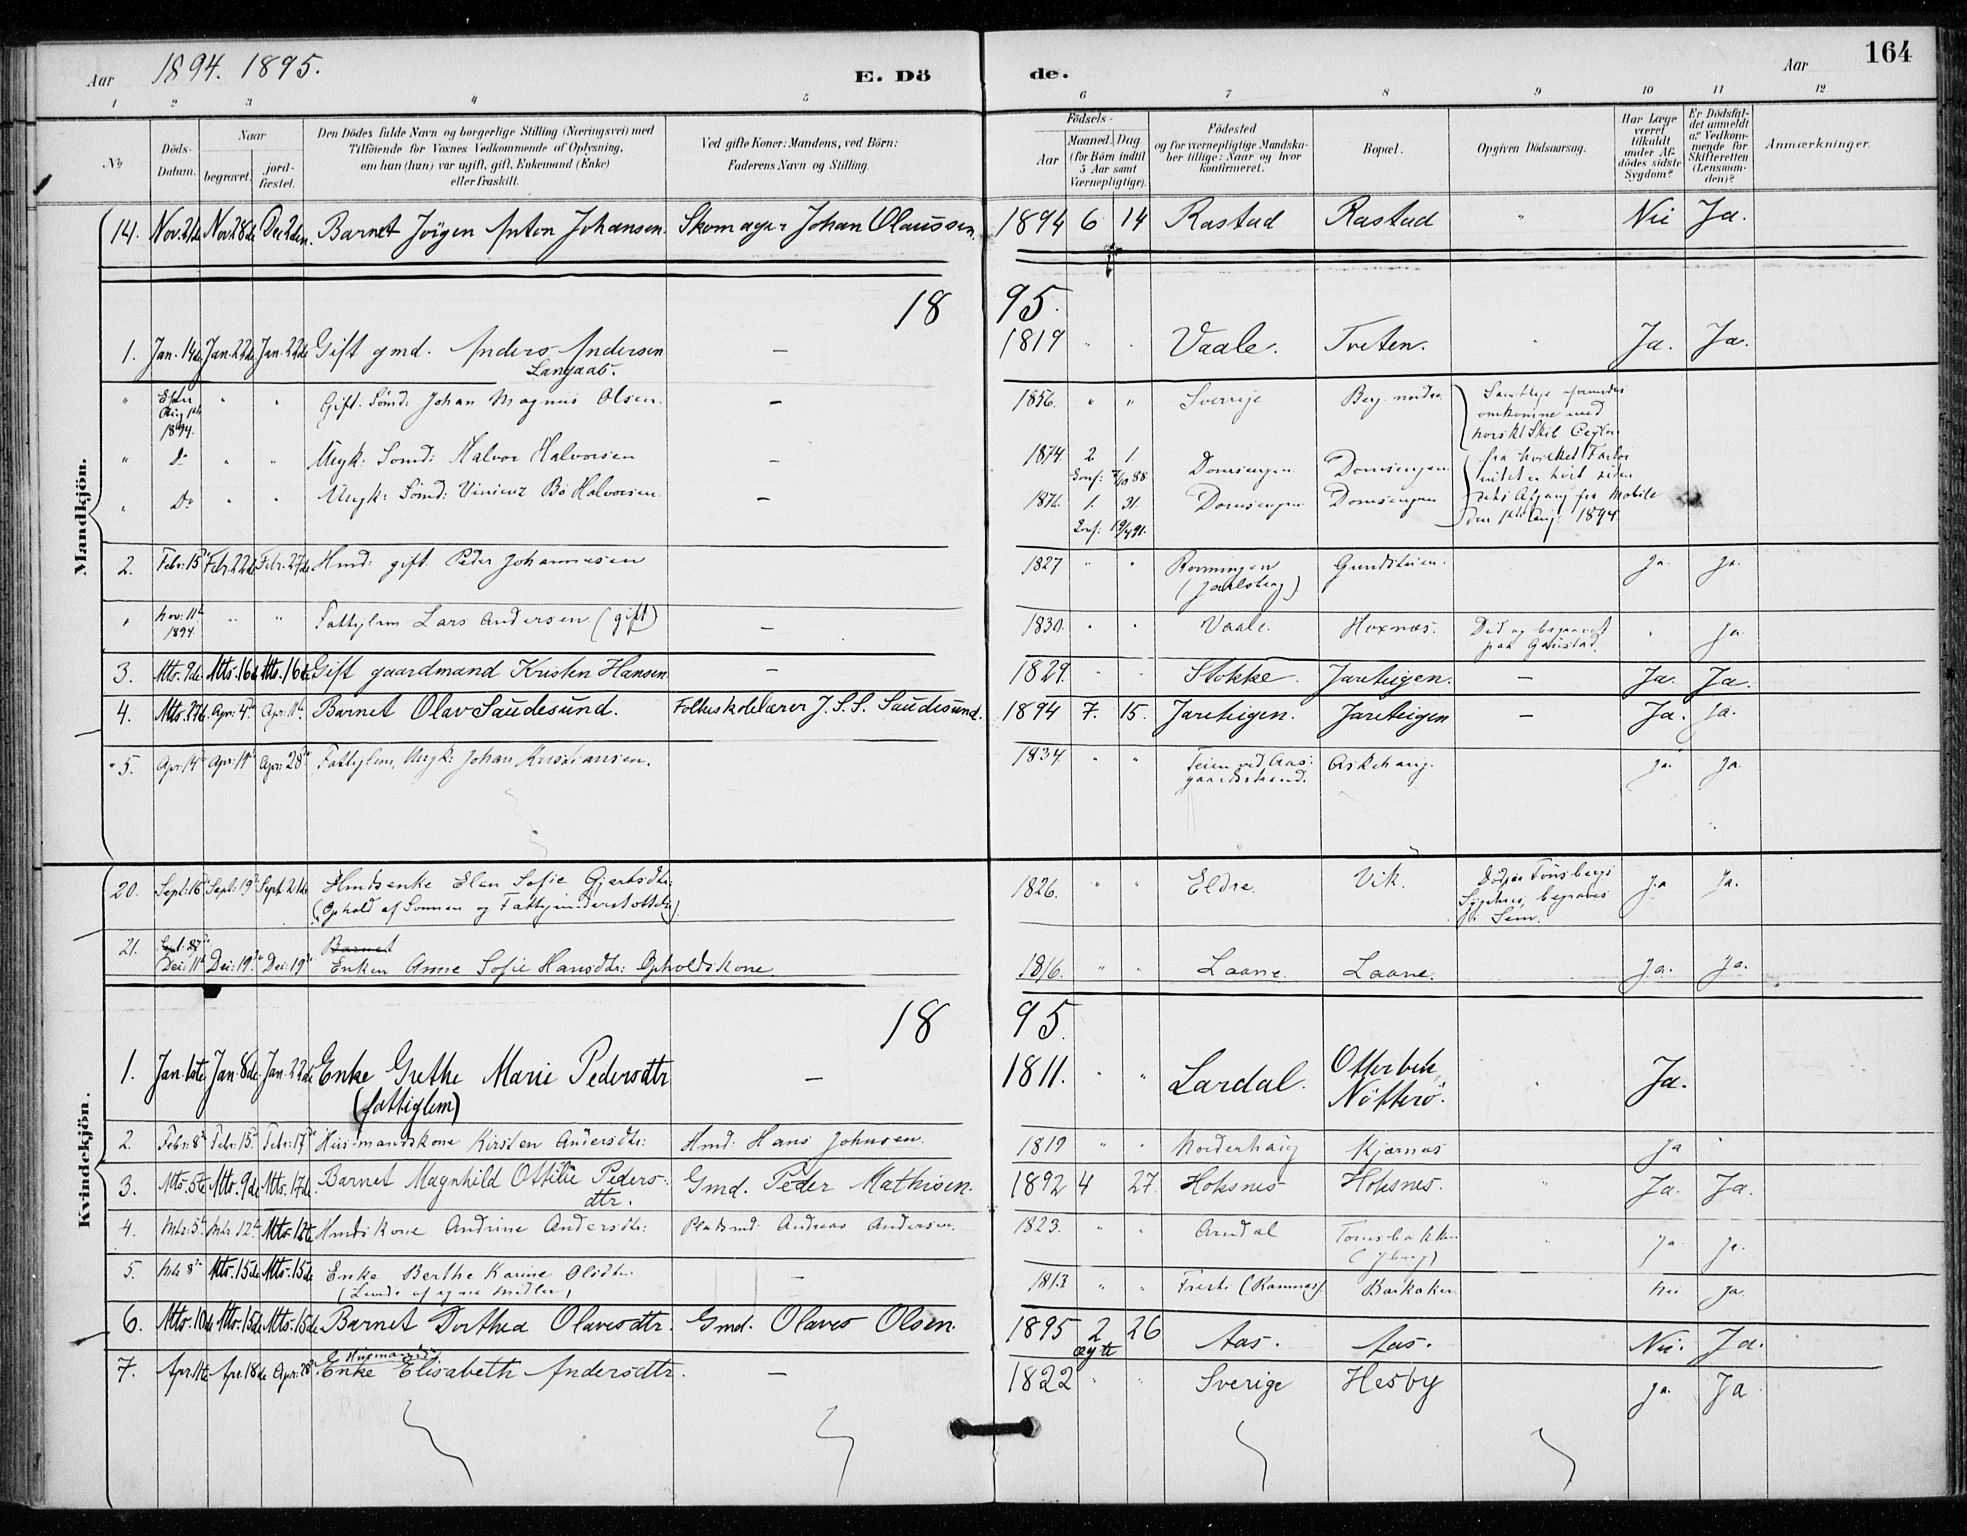 Aar 1894. 1895. E. Dö de. Aar 164
1 2 3 4 5 6 7 8 9 10 11 12
No Döds-Datum. Naar begravet. jord-fæstet. Den Dödes fulde Navn og borgerlige Stilling (Næringsvei) med Tilföiende för Voxnes Vedkommende af Oplysning, om han (hun) var ugift, gift, Enkemand (Enke) eller fraskilt. Ved gifte Koner: Mandens, ved Börn: Faderens Navn og Stilling. Födsels- Aar Maaned. Dag (for Börn indtil 5 Aar samt Værnepligtige). Födested og for værnepligtige Mandskaber tillige: Naar og hvor konfirmeret. Bopæl. Opgiven Dödsaarsag. Har Læge været tilkaldt under Afdödes sidste Sygdom? Er Dödsfaldet anmeldt af Vedkommende for Skifteretten (Lensmanden)? Anmærkninger.
Mandkjön.
14. Nov. 21de Nov. 28de Dec. 2den. Barnet Jörgen Anton Johansen. Skomager Johan Olaussen. 1894 6 14 Rastad Rastad " Nei Ja.
18 95.
1. Jan. 14de Jan. 22de Jan. 22de Gift gmd. Anders Andersen — 1819 " " Vaale. Tveten. " Ja. Ja.
Langaas.
" Efter Aug. 1ste 1894. " " Gift. Sömd: Johan Magnus Olsen. — 1856. " " Sverrige Berg nordre Samtlige formodes omkomne med norsk Skib Ceylon
" Do " " Ungk: Sömd: Halvor Halvorsen — 1874. 2 1 Domsengen. Domsengen fra hvilket Fartöi intet er hört siden
Conf: 7/10 88.
" Do " " Ungk: Sömd: Vincenz Bö Halvorsen. — 1876. 1. 31. Domsengen Domsengen dets Afgang fra Mobile den 1ste Aug: 1894.
Conf:
2. Febr: 15 Febr. 22de Febr. 27de Hmd: gift Peder Johannesen 1827 " " Ramnæs
(Jarlsberg) Ja. Ja.
" Nov: 11te 1894. " " Fattiglem Lars Andersen (gift) — 1830. " " Vaale. Hoxnæs. Död og begravet paa Gaustad. " Ja.
3. Mts. 9de Mts. 16de Mts. 16de Gift gaardmand Kristen Hansen — 1829. " " Stokke. Jareteigen. — Ja. Ja.
4. Mts. 27de Apr: 4de Apr: 11te Barnet Olav Saudesund. Folkeskolelærer J. S. S. Saudesund. 1894 7. 15. Jareteigen. Jareteigen — Ja. Ja.
5. Apr: 14de Apr: Apr: 28de Fattiglem, Ungk: Johan Kristiansen. 1834. " " Teien ved Aasgaardstrand. Askehaug. Ja. Ja
Kvindekjön.
20. Sept: 16de Sept: 19de Sept. 21de Hmdsenke Elen Sofie Gjertsdtr: 1826. " " Eldre. Vik. Död paa Tönsbergs Ja Ja.
(Ophold af Sönnen og Fattigunderstöttelse) Sygehus, begravet
Sem.
21. Sept: 27de Barnet
Dec: 11te Dec: 19de Dec: 19de Enken Anne Sofie Hansdtr: Opholdskone 1816. " " Laane. Laane. Ja. Ja.
18 95.
1. Jan 1ste Jan. 8de. Jan. 22de Enke Grethe Marie Pedersdtr — 1811. " " Lardal. Otterbek, Nötterö. " Ja.
(fattiglem)
2. Febr: 8de Febr: 15de Febr: 17de Husmandskone Kirsten Andersdtr: Hmd: Hans Johnsen. 1819 " " Norderhaug Kjærnæs Ja "
3. Mts. 5te Mts. 9de Mts. 17de Barnet Magnhild Ottilie Peders- Gmd. Peder Mathisen. 1892 4 27. Hoksnes Hoksnes. " Ja. Ja.
dtr.
4. Mts: 5te Mts: 12te Mts. 12te Hmdskone Andrine Andersdtr: Pladsmd: Andreas Andersen. 1823. " " Arndal Tomsbakken " Ja. Ja.
5. Mts 8de Mts. 15de Mts. 15de Enke Berthe Karine Olsdtr. — 1813 " " (Ramnæs). Barkaker. Nei Ja.
(Levede af egne Midler)
6. Mts. 10de Mts. 15de Mts. 15de Barnet Dorthea Olavesdtr. Gmd. Olaves Olsen. 1895 2 26 Aas. Aas. Nei. Ja.
ægte
7. Apr. 11te Apr. 18de Apr: 28de Husmands Enke Elisabeth Andersdtr. — 1822 " " Sverige Hesby Ja. Ja